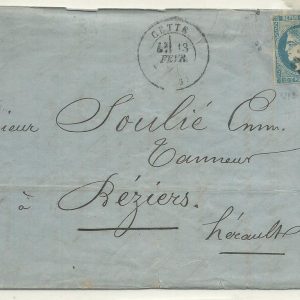 CETTE
13
FEVR.
ieur Soulié Comm.
Tanneur
à Béziers.
hérault